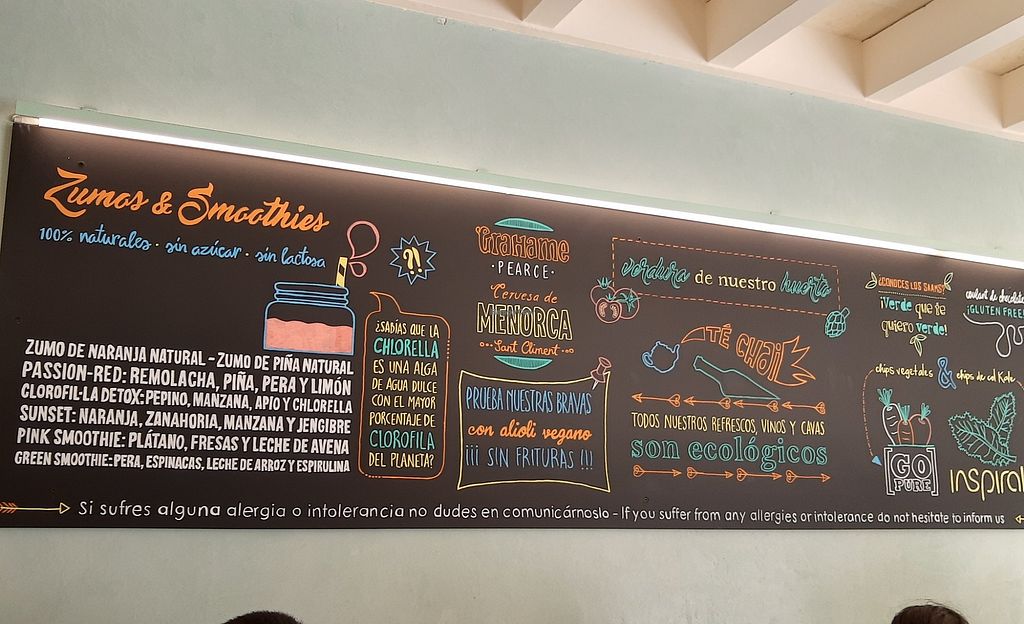 Zumos & Smoothies
100% naturales · sin azúcar · sin lactosa
?!
ZUMO DE NARANJA NATURAL - ZUMO DE PIÑA NATURAL
PASSION-RED: REMOLACHA, PIÑA, PERA Y LIMÓN
CLOROFIL·LA DETOX: PEPINO, MANZANA, APIO Y CHLORELLA
SUNSET: NARANJA, ZANAHORIA, MANZANA Y JENGIBRE
PINK SMOOTHIE: PLÁTANO, FRESAS Y LECHE DE AVENA
GREEN SMOOTHIE: PERA, ESPINACAS, LECHE DE ARROZ Y ESPIRULINA
¿SABÍAS QUE LA
CHLORELLA
ES UNA ALGA
DE AGUA DULCE
CON EL MAYOR
PORCENTAJE DE
CLOROFILA
DEL PLANETA?
GRAHAME
· PEARCE ·
Cervesa de
MENORCA
Sant Climent
PRUEBA NUESTRAS BRAVAS
con alioli vegano
¡¡¡ SIN FRITURAS !!!
verdura de nuestro huerto
TÉ CHAI
TODOS NUESTROS REFRESCOS, VINOS Y CAVAS
son ecológicos
¿CONOCES LOS SAAMS?
¡Verde que te
quiero verde!
coulant de chocolate
¡GLUTEN FREE!
chips vegetales & chips de col Kale
GO
PURE
inspiral
Si sufres alguna alergia o intolerancia no dudes en comunicárnoslo - If you suffer from any allergies or intolerance do not hesitate to inform us